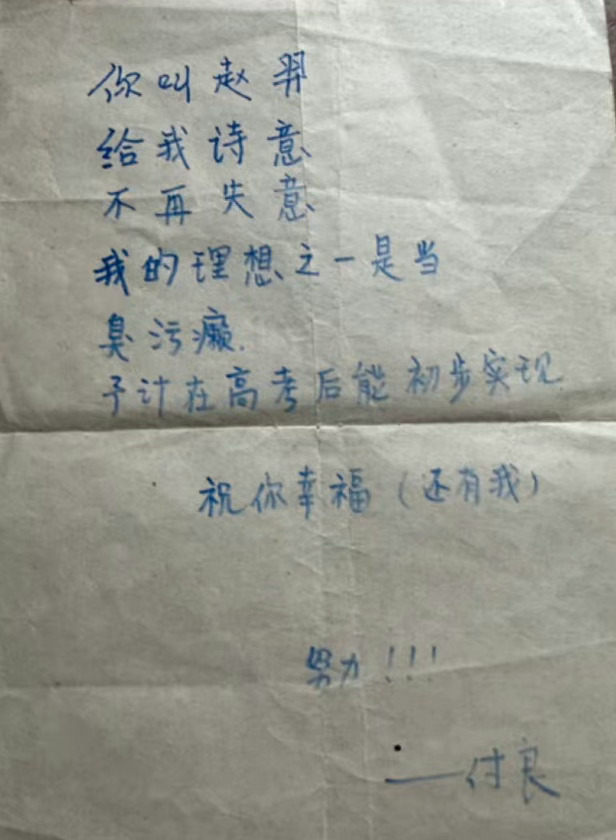 你叫赵羿
给我诗意
不再失意
我的理想之一是当
臭污癞.
予计在高考后能初步实现
祝你幸福（还有我）
努力!!!
——付良